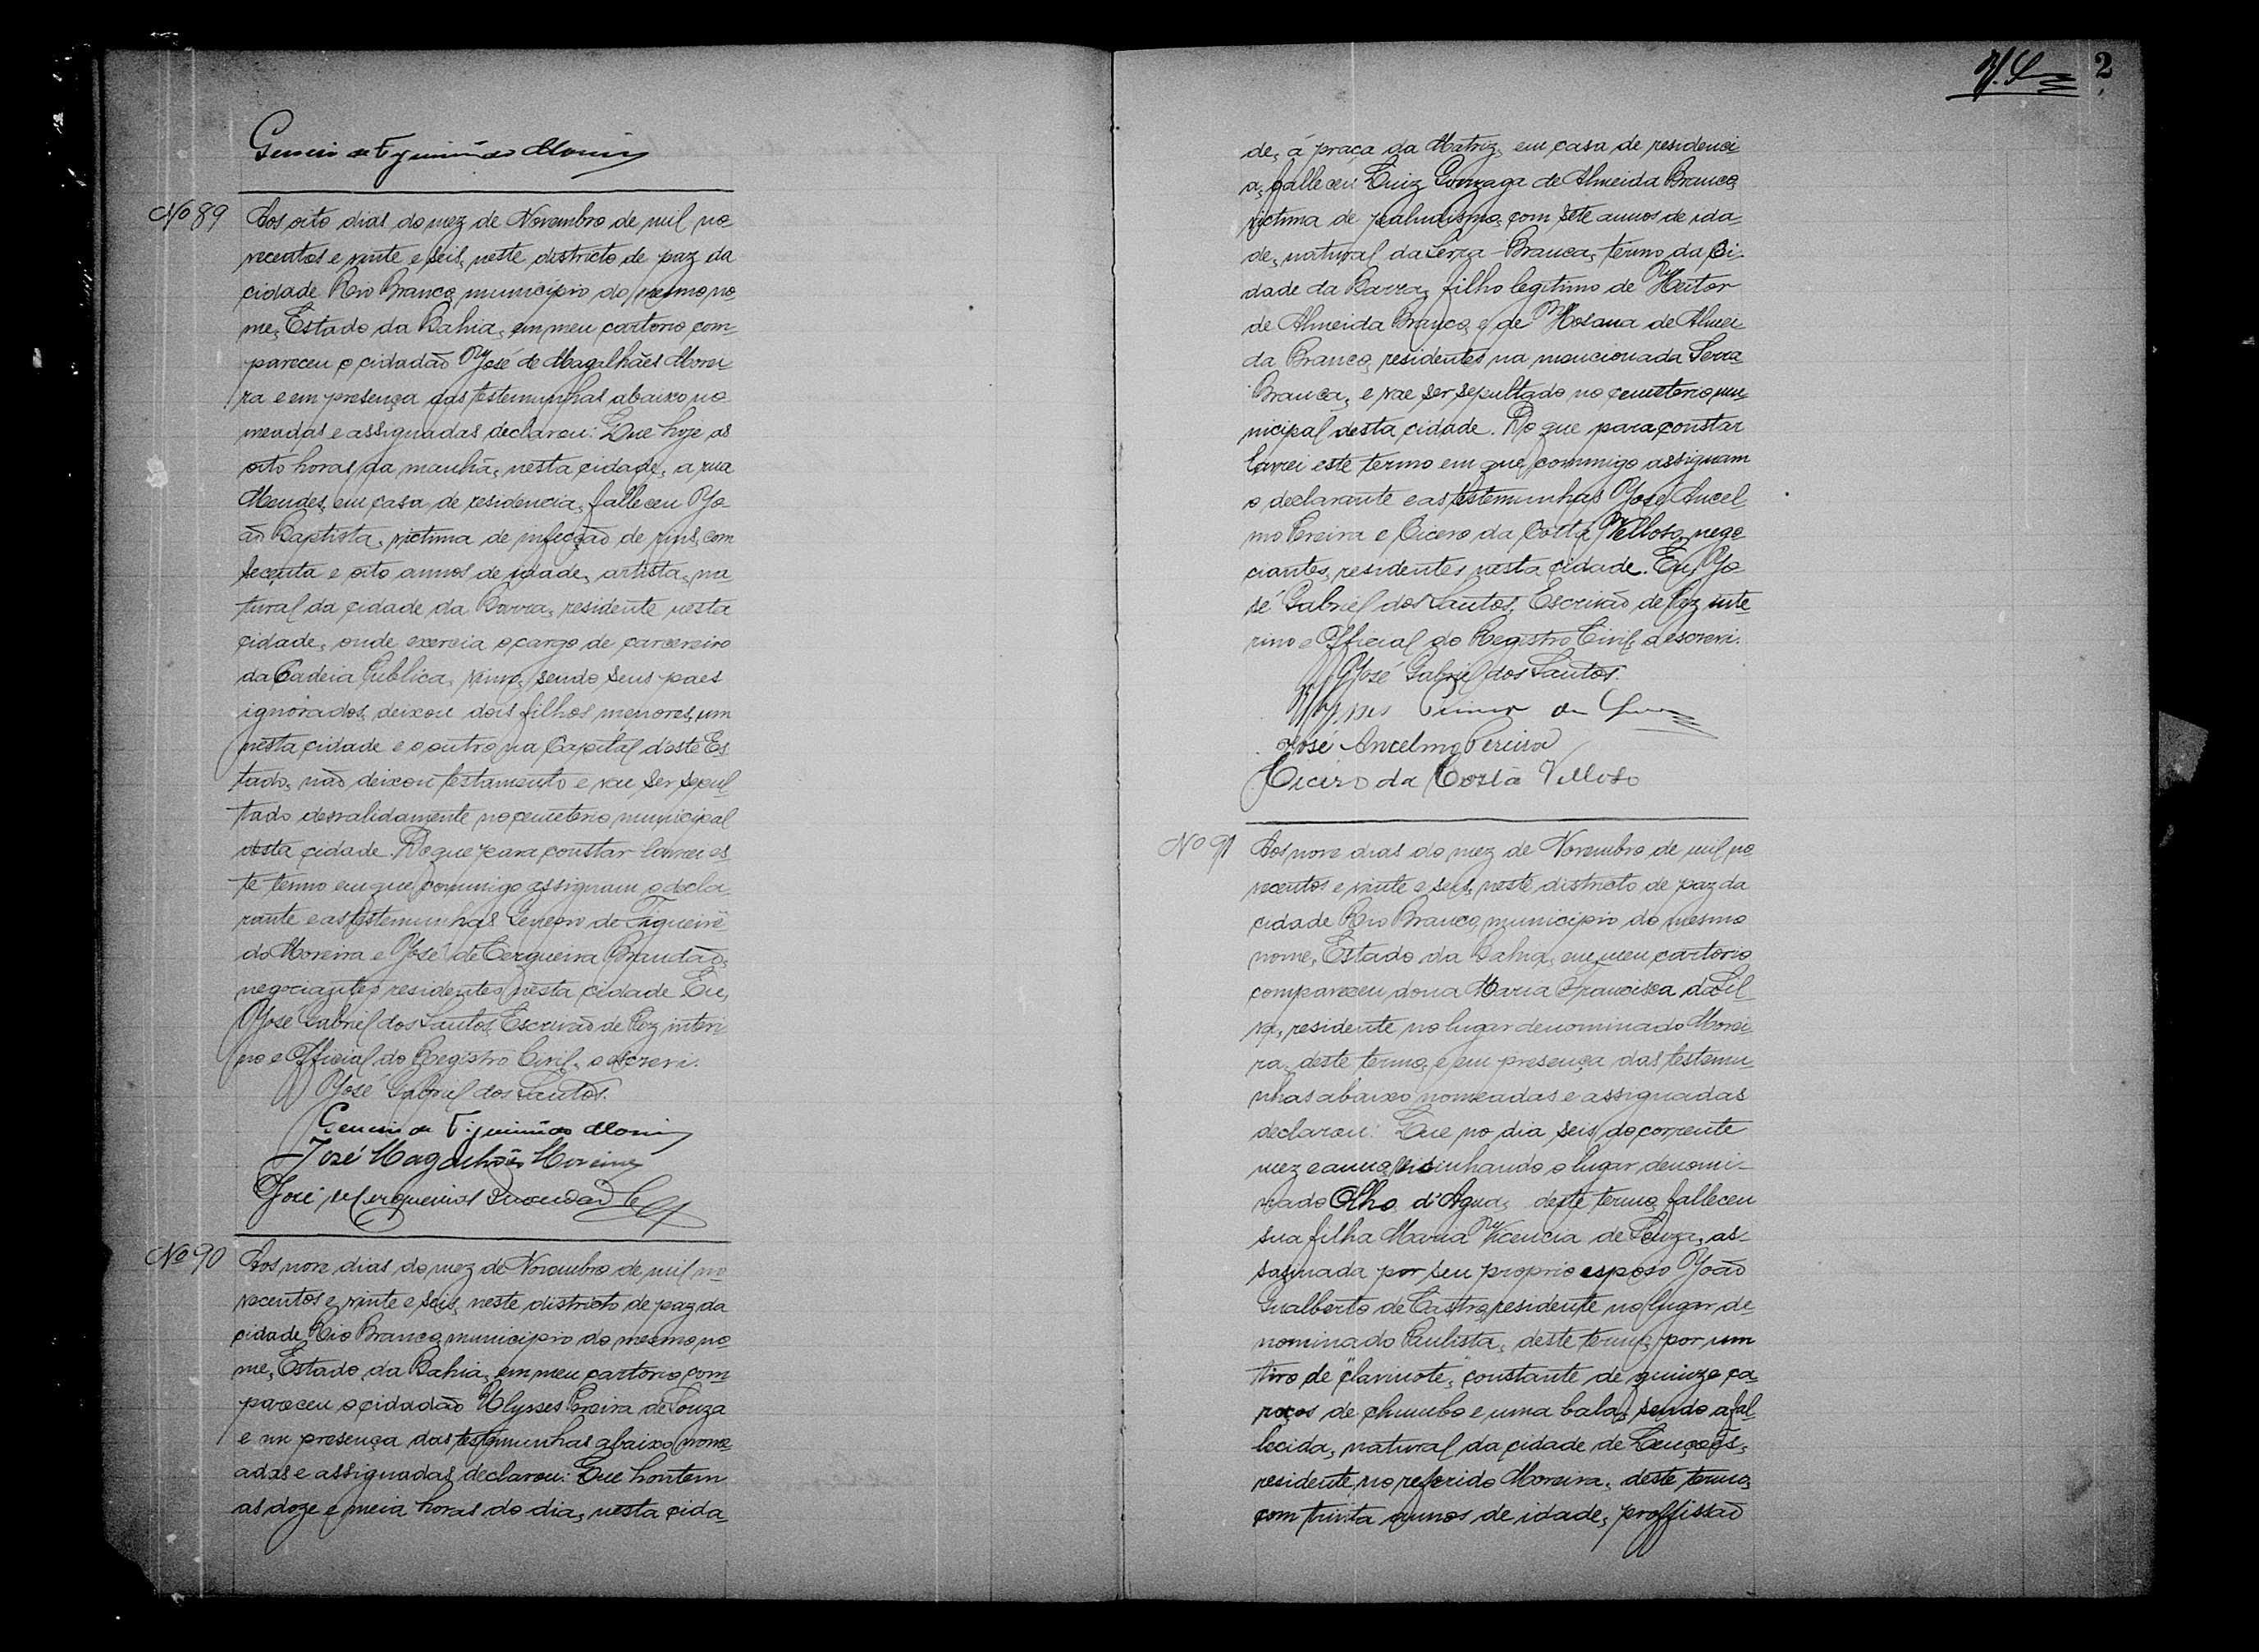 Genesio de Figueirêdo Moreira
Nº 89
Aos oito dias do mez de Novembro de mil no-
vecentos e vinte e seis, neste districto de paz da
cidade Rio Branco, municipio do mesmo no-
me, Estado da Bahia, em meu cartorio, com-
pareceu o cidadão José de Magalhães Morei-
ra e em presença das testemunhas abaixo no-
meadas e assignadas declarou: Que hoje as
oito horas da manhã, nesta cidade, a rua
Mendes, em casa de residencia, falleceu Jo-
ão Baptista, victima de infecção de rins, com
secenta e oito annos de idade, artista, na-
tural da cidade da Barra, residente nesta
cidade, onde exercia o cargo de carcereiro
da Cadeia Publica, viuvo, sendo seus paes
ignorados, deixou dois filhos menores, um
nesta cidade e o outro na Capital d'este Es-
tado, não deixou testamento e vae ser sepul-
tado desvalidamente no cemeterio municipal
desta cidade. Do que para constar lavrei es-
te termo em que commigo assignam o decla-
rante e as testemunhas Genesio de Figueirê-
do Moreira e José de Cerqueira Brandão,
negociantes residentes nesta cidade. Eu,
José Gabriel dos Santos, Escrivão de Paz interi-
no e Official do Registro Civil, o escrevi.
José Gabriel dos Santos.
Genesio de Figueirêdo Moreira
José Magalhães Moreira
José de Cerqueira Brandão
Nº 90
Aos nove dias do mez de Novembro de mil no-
vecentos e vinte e seis, neste districto de paz da
cidade Rio Branco, municipio do mesmo no-
me, Estado da Bahia, em meu cartorio, com-
pareceu o cidadão Ulysses Pereira de Souza
e em presença das testemunhas abaixo nome-
adas e assignadas declarou: Que hontem
as doze e meia horas do dia, nesta cida-
2
de, á praça da Matriz, em casa de residenci-
a, falleceu Luiz Gonzaga de Almeida Branco,
victima de paludismo, com sete annos de ida-
de, natural da Serra-Branca, termo da Ci-
dade da Barra, filho legitimo de Heitor
de Almeida Branco, e de Hosana de Almei-
da Branco, residentes na mencionada Serra
Branca, e vae ser sepultado no cemeterio mu-
nicipal desta cidade. Do que para constar
lavrei este termo em que commigo assignam
o declarante e as testemunhas José Ancel-
mo Pereira e Cicero da Costa Velloso, nego-
ciantes, residentes nesta cidade. Eu, Jo-
sé Gabriel dos Santos, Escrivão de Paz inte-
rino e Official do Registro Civil, o escrevi.
José Gabriel dos Santos.
Ulysses Pereira de Souza
José Ancelmo Pereira
Cicero da Costa Velloso
Nº 91
Aos nove dias do mez de Novembro de mil no-
vecentos e vinte e seis, neste districto de paz da
cidade Rio Branco, municipio do mesmo
nome, Estado da Bahia, em meu cartorio
compareceu dona Maria Francisca da Sil-
va, residente no lugar denominado Morei-
ra, deste termo, e em presença das testemu-
nhas abaixo nomeadas e assignadas
declarou: Que no dia seis do corrente
mez e anno, visinhando o lugar denomi-
nado Olho d'Agua, deste termo, falleceu
sua filha Maria Vicencia de Souza, as-
sasinada por seu proprio esposo João
Gualberto de Castro, residente no lugar de-
nominado Paulista, deste termo, por um
tiro de "clavinote", constante de quinze ca-
roços de chumbo e uma bala, sendo a fal-
lecida, natural da cidade de Lençoes,
residente no referido Moreira, deste termo,
com trinta annos de idade, proffissão